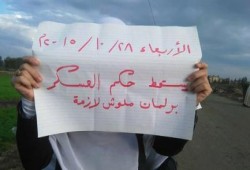 الأربعاء ٢٨ / ١٠ / ٢٠١٥ م
يسقط حكم العسكر
برلمان ملوش لازمة